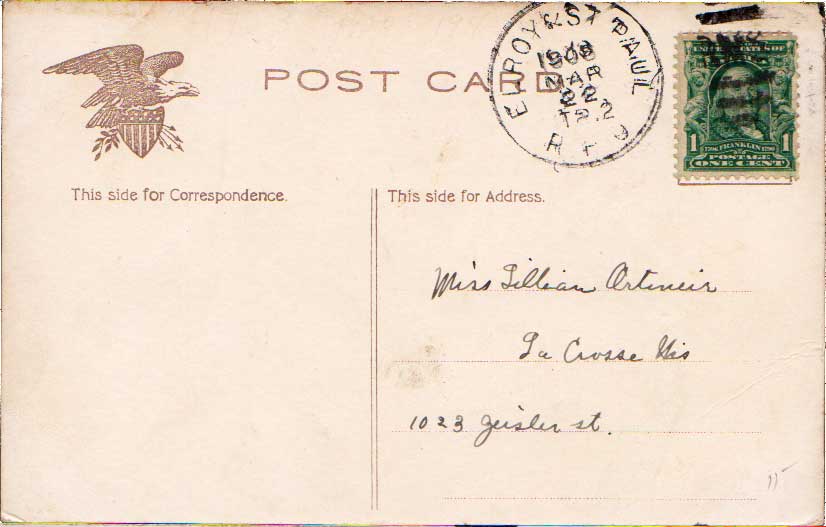 POST CARD
ELROY & ST PAUL
1908
MAR
22
TR.2
R P O
UNITED STATES OF
1 1706 FRANKLIN 1790 1
POSTAGE
ONE CENT
This side for Correspondence.
This side for Address.
Miss Lillian
La Crosse Wis
1023 Zeisler st.